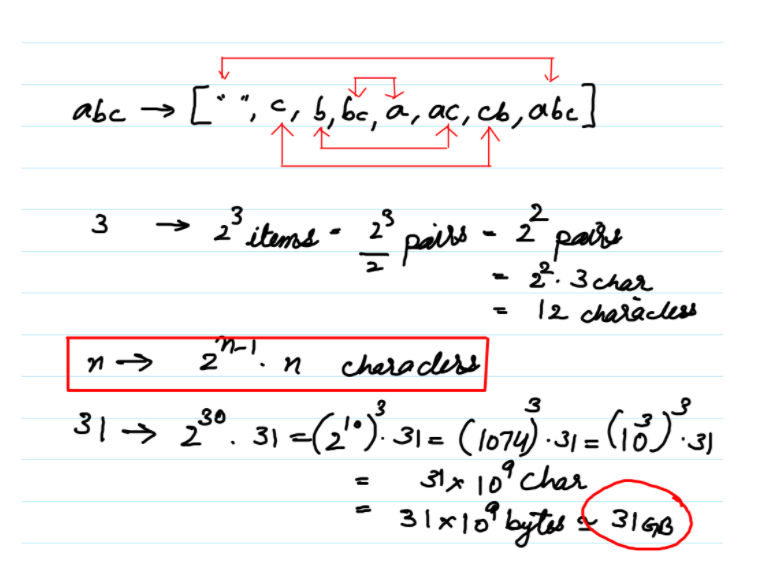 abc → [" ", c, b, bc, a, ac, cb, abc]
3 → 2^3 items = 2^3/2 pairs = 2^2 pairs
= 2^2 · 3 char
= 12 characters
n → 2^(n-1) · n characters
31 → 2^30 · 31 = (2^10)^3 · 31 = (1074)^3 · 31 = (10^3)^3 · 31
= 31 × 10^9 char
= 31 × 10^9 bytes ≃ 31GB